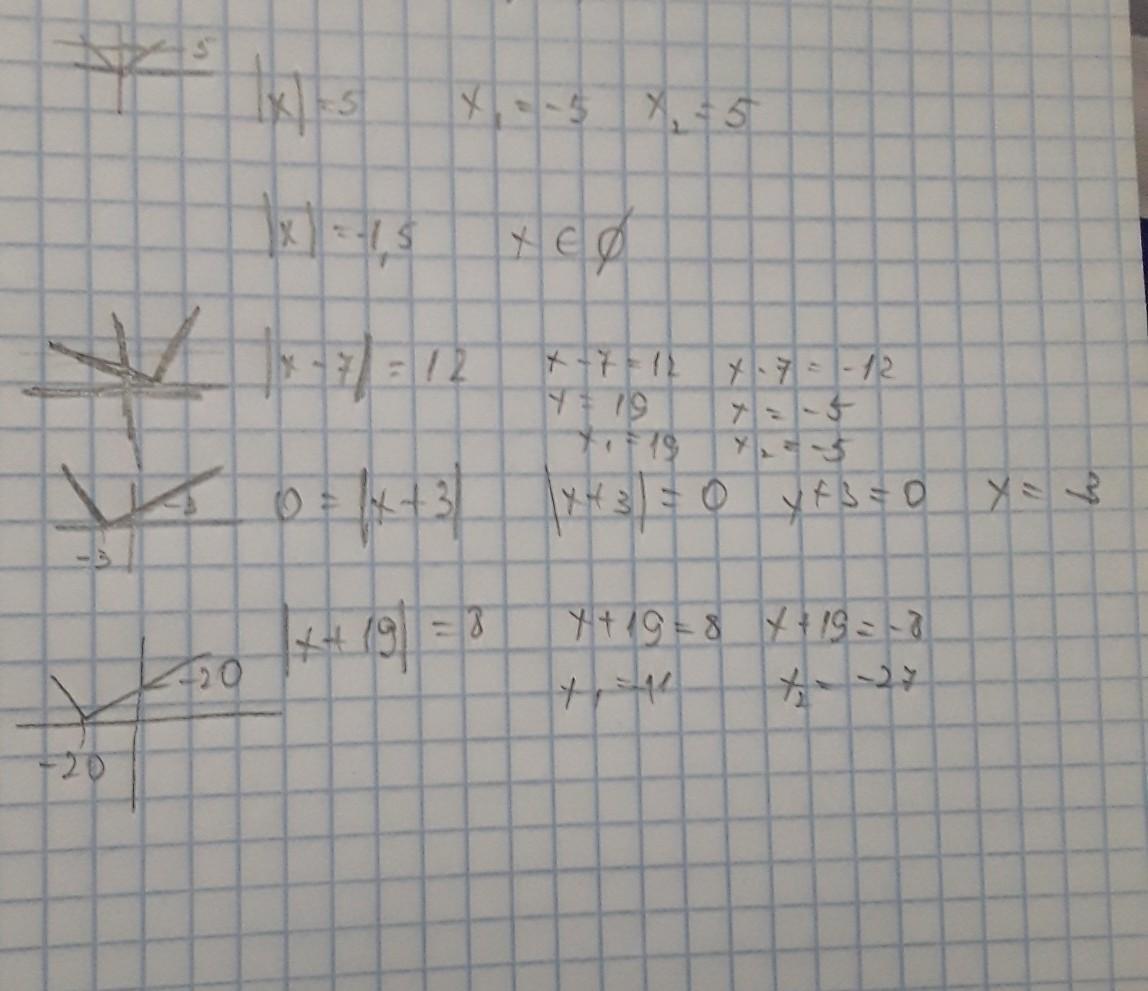 5
|x| = 5 x₁ = -5 x₂ = 5
|x| = -1,5 x ∈ ∅
|x - 7| = 12 x - 7 = 12 x - 7 = -12
x = 19 x = -5
x₁ = 19 x₂ = -5
-3 0 = |x + 3| |x + 3| = 0 x + 3 = 0 x = -3
-3
|x + 19| = 8 x + 19 = 8 x + 19 = -8
-20 x₁ = -11 x₂ = -27
-20